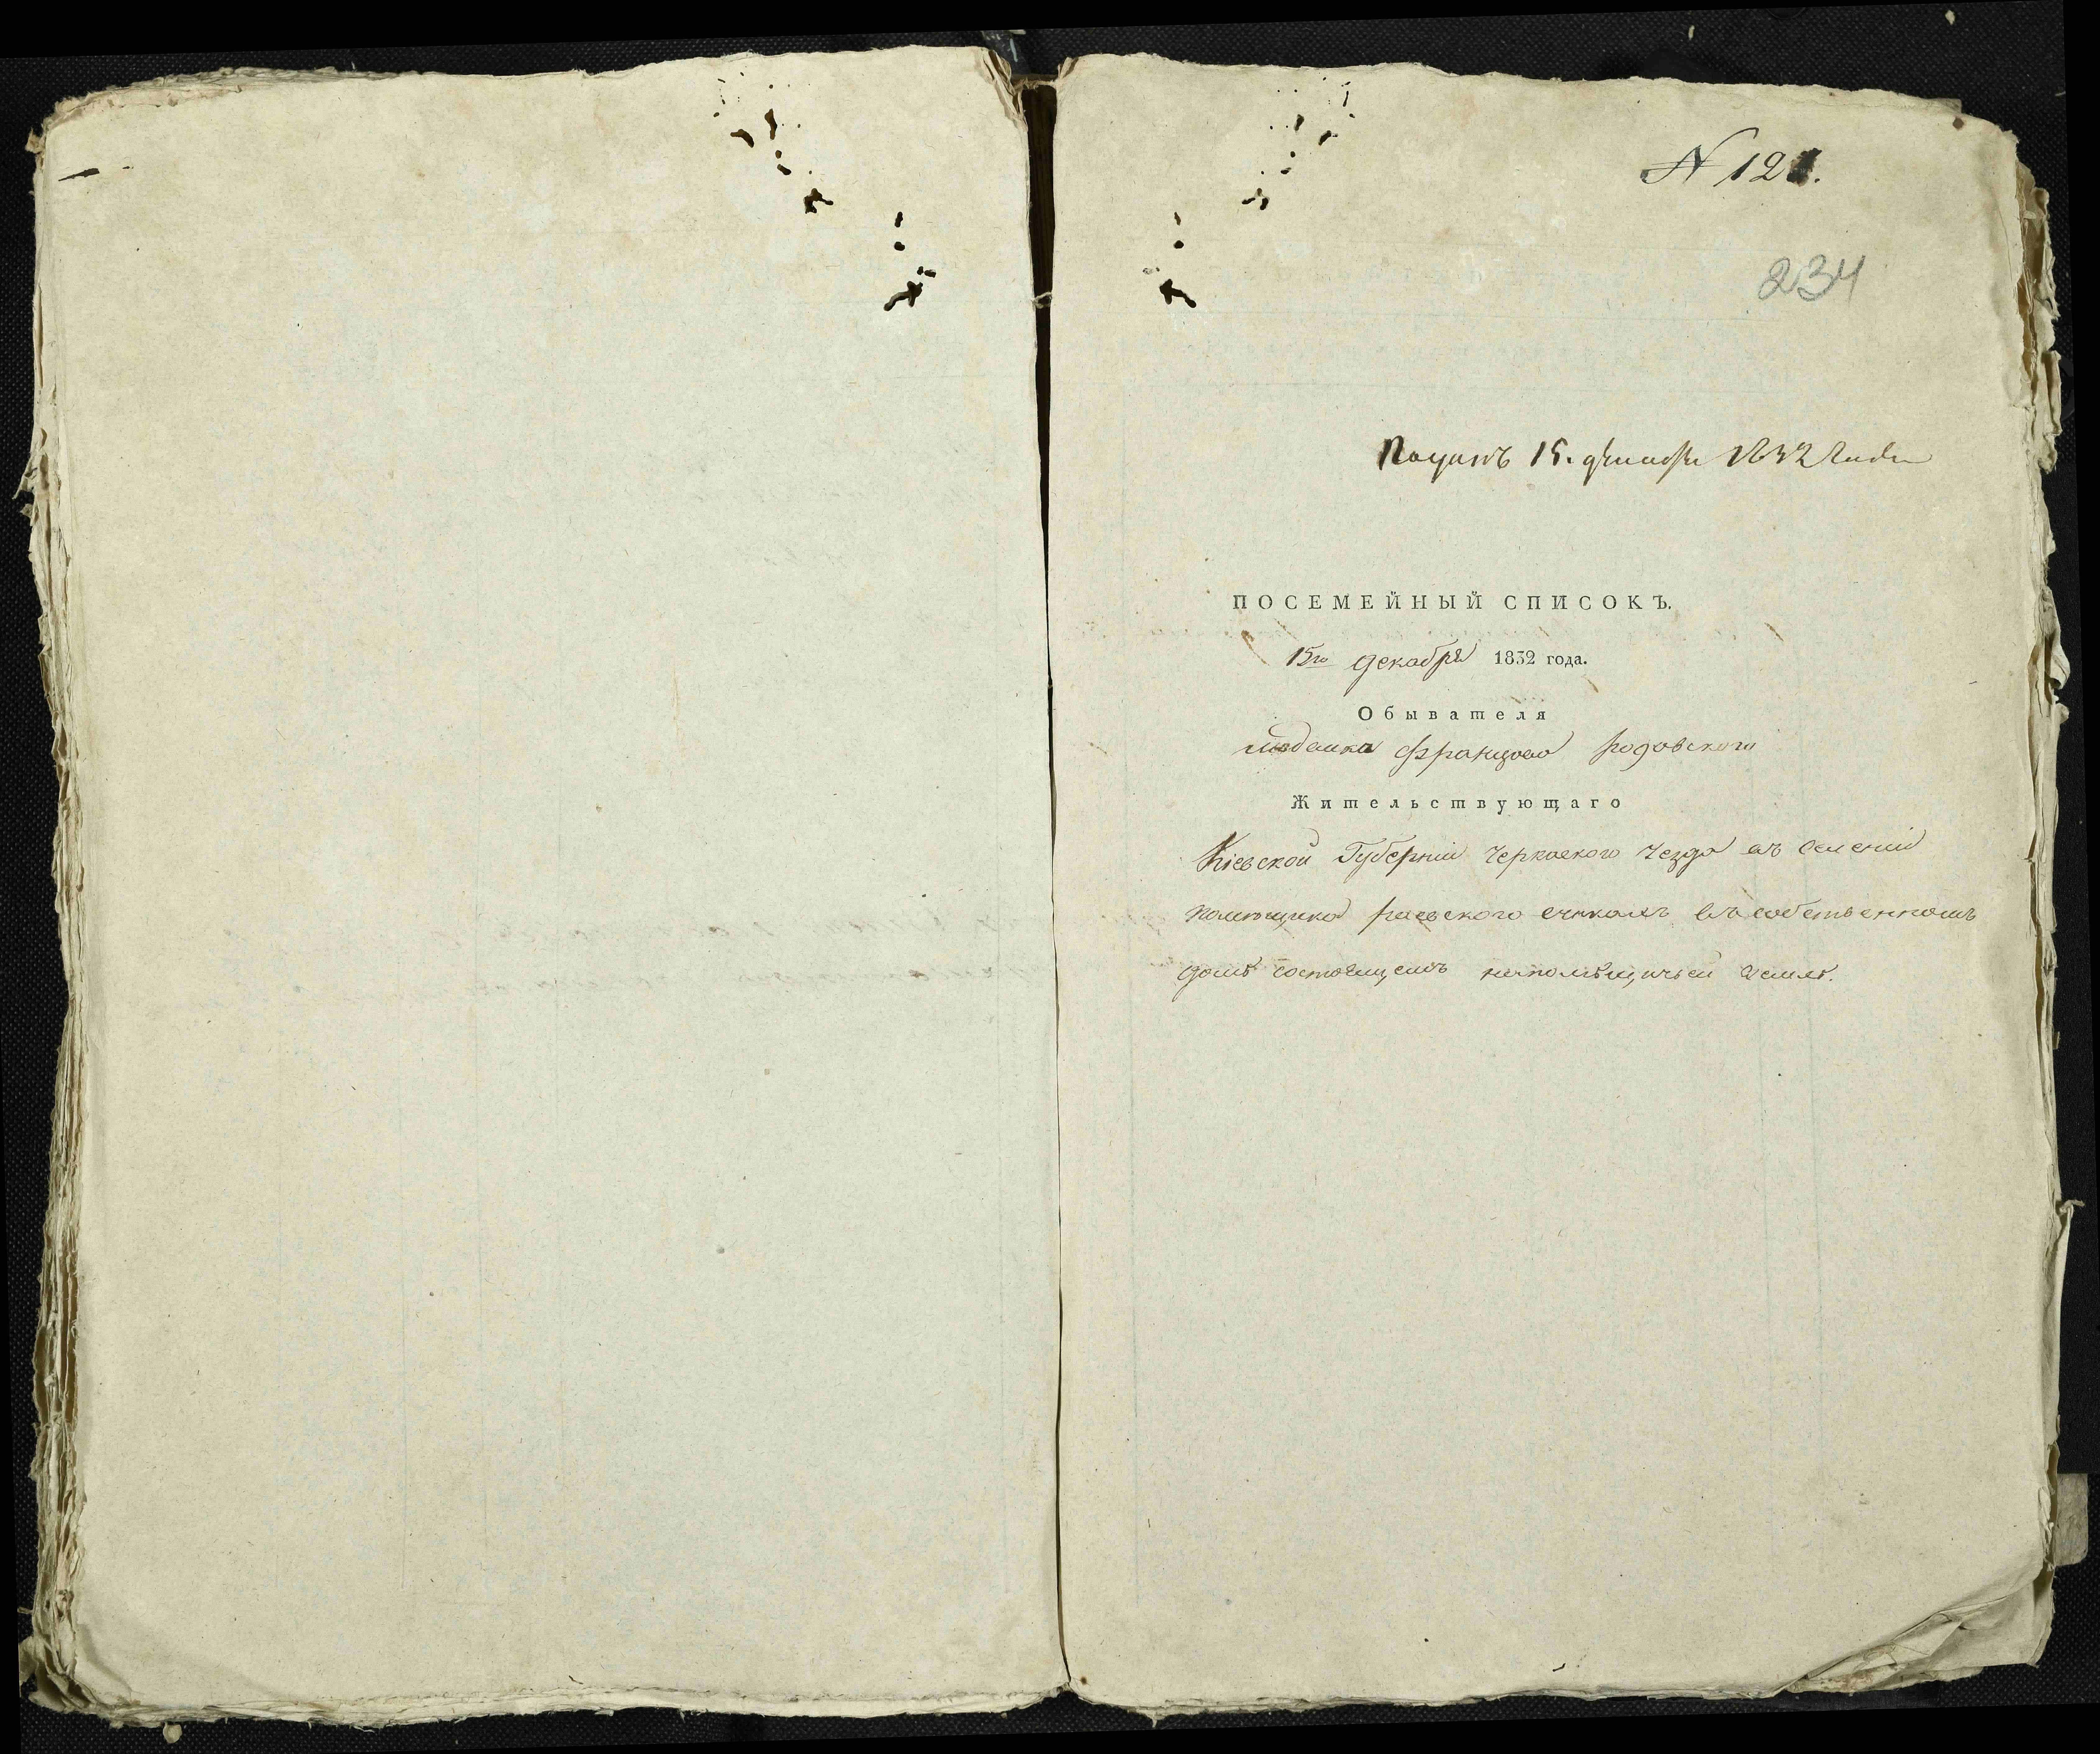 N 121.
234
Поданъ 15. декабря 1832 года
ПОСЕМЕЙНЫЙ СПИСОКЪ.
15го декабря 1832 года.
Обывателя
Франца Родовского
Жительствующаго
Кіевской Губерніи Черкаского уезда въ селеніи
помещика раевского въ собственномъ
доме состоящемъ напомѣщичьей земле.